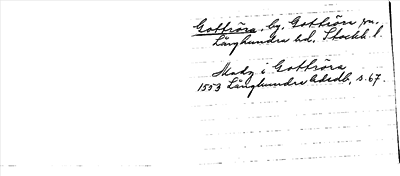 Gottröra, by, Gottröra sn.,
Långhundra hd, Stockh. l.
Mady i Gottröra
1553 Långhundra hdsdb, s. 67.